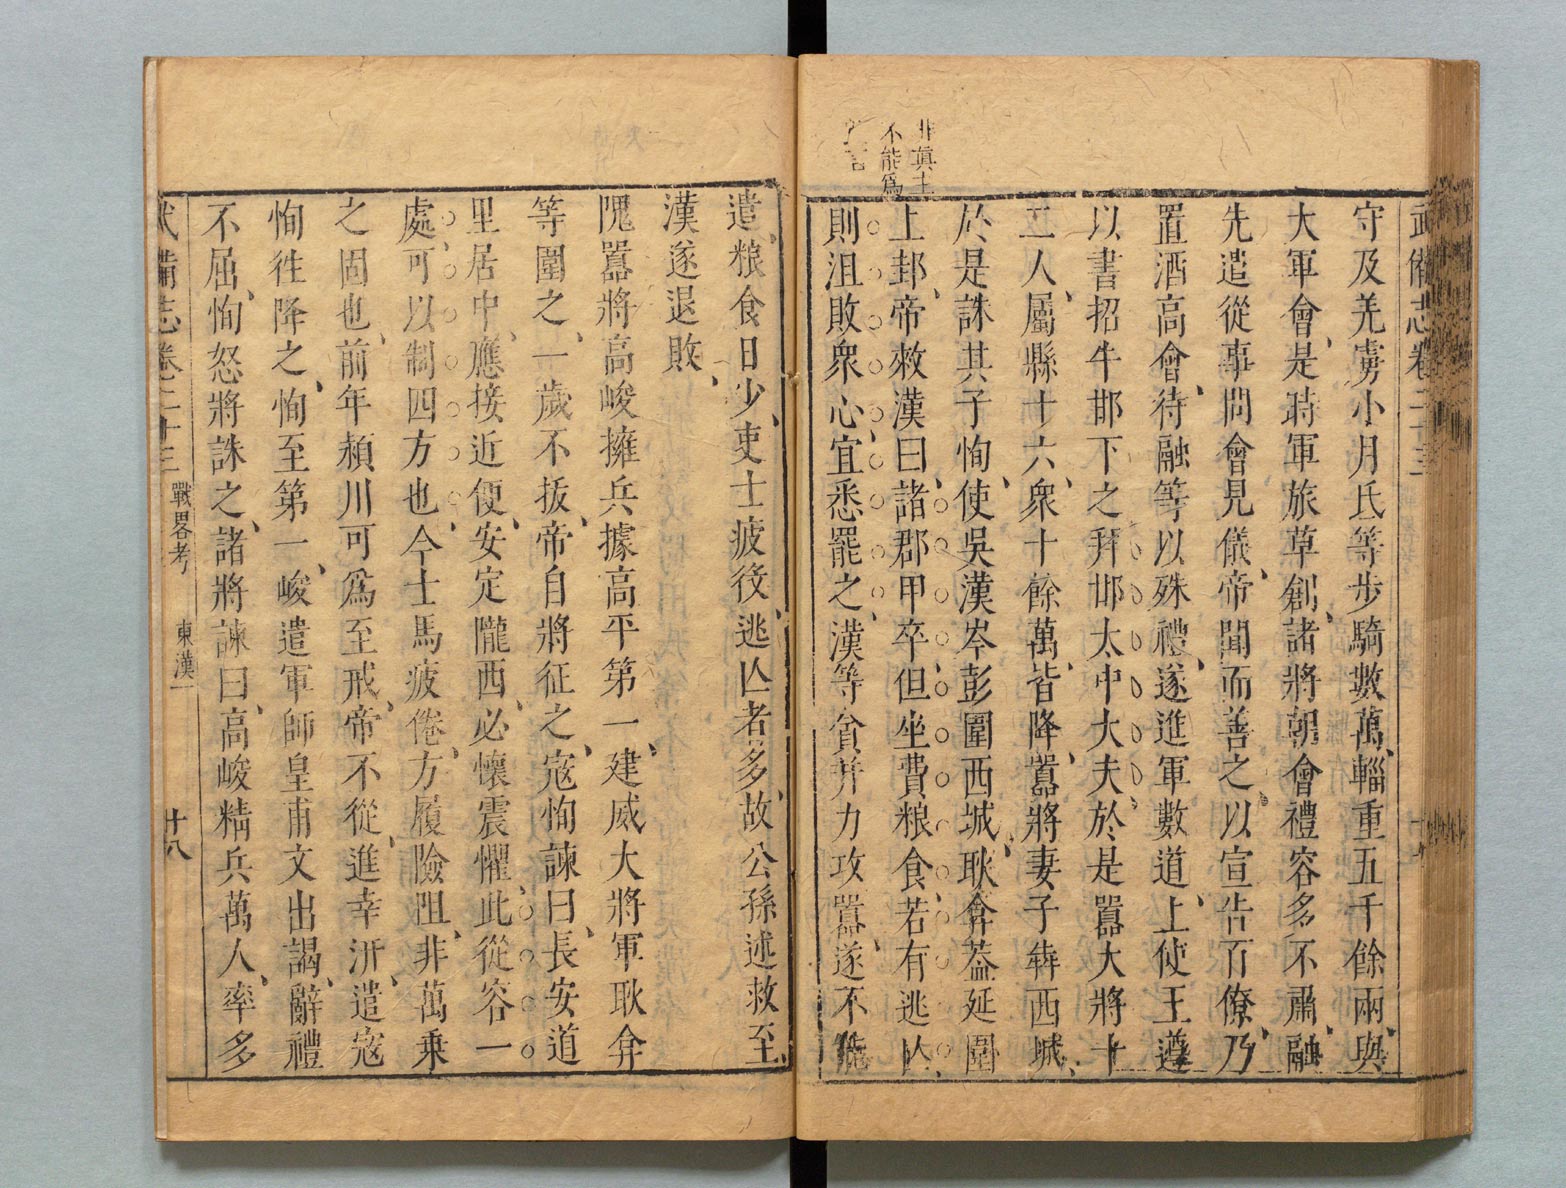 武備志卷二十三
守及羌虜小月氏等步騎數萬輜重五千餘兩與
大軍會是時軍旅草創諸將朝會禮容多不肅融
先遣從事問會見儀帝聞而善之以宣告百僚乃
置酒高會待融等以殊禮遂進軍數道上使王遵
以書招牛邯下之拜邯太中大夫於是囂大將十
二人屬縣十六衆十餘萬皆降囂將妻子犇西城
於是誅其子恂使吳漢岑彭圍西城耿弇葢延圍
上邽帝敕漢曰諸郡甲卒但坐費粮食若有逃亾
則沮敗衆心宜悉罷之漢等貪并力攻囂遂不能
非真主
不能爲
言
遣粮食日少吏士疲役逃亾者多故公孫述救至
漢遂退敗
隗囂將高峻擁兵據高平第一建威大將軍耿弇
等圍之一歲不拔帝自將征之寇恂諫曰長安道
里居中應接近便安定隴西必懷震懼此從容一
處可以制四方也今士馬疲倦方履險阻非萬乘
之固也前年潁川可爲至戒帝不從進幸汧遣寇
恂徃降之恂至第一峻遣軍師皇甫文出謁辭禮
不屈恂怒將誅之諸將諫曰高峻精兵萬人率多
武備志卷二十三 戰畧考 東漢一 十八